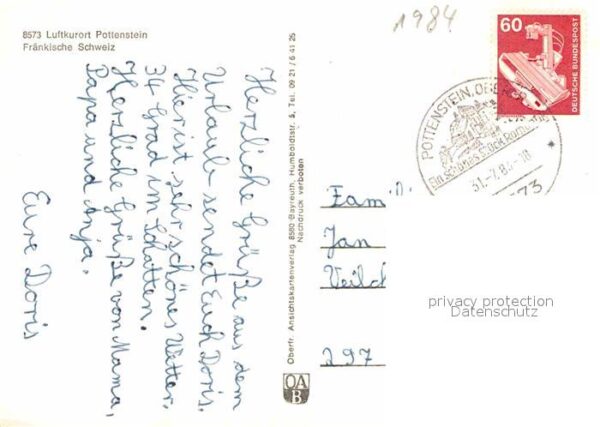 8573 Luftkurort Pottenstein
Fränkische Schweiz
1984
60
DEUTSCHE BUNDESPOST
POTTENSTEIN, OBERFR
Ein schönes Stück
31.-7.8 -18
8573
Herzliche Grüße aus dem
Urlaub sendet Euch Doris.
Hier ist sehr schönes Wetter.
34 Grad im Schatten.
Herzliche Grüße von Mama,
Papa und Anja.
Eure Doris
Oberfr. Ansichtskartenverlag 8580 Bayreuth, Humboldtstr. 5, Tel. 09 21 / 6 41 25
Nachdruck verboten
OA
B
Fam.
Jan
Veild
297
privacy protection
Datenschutz